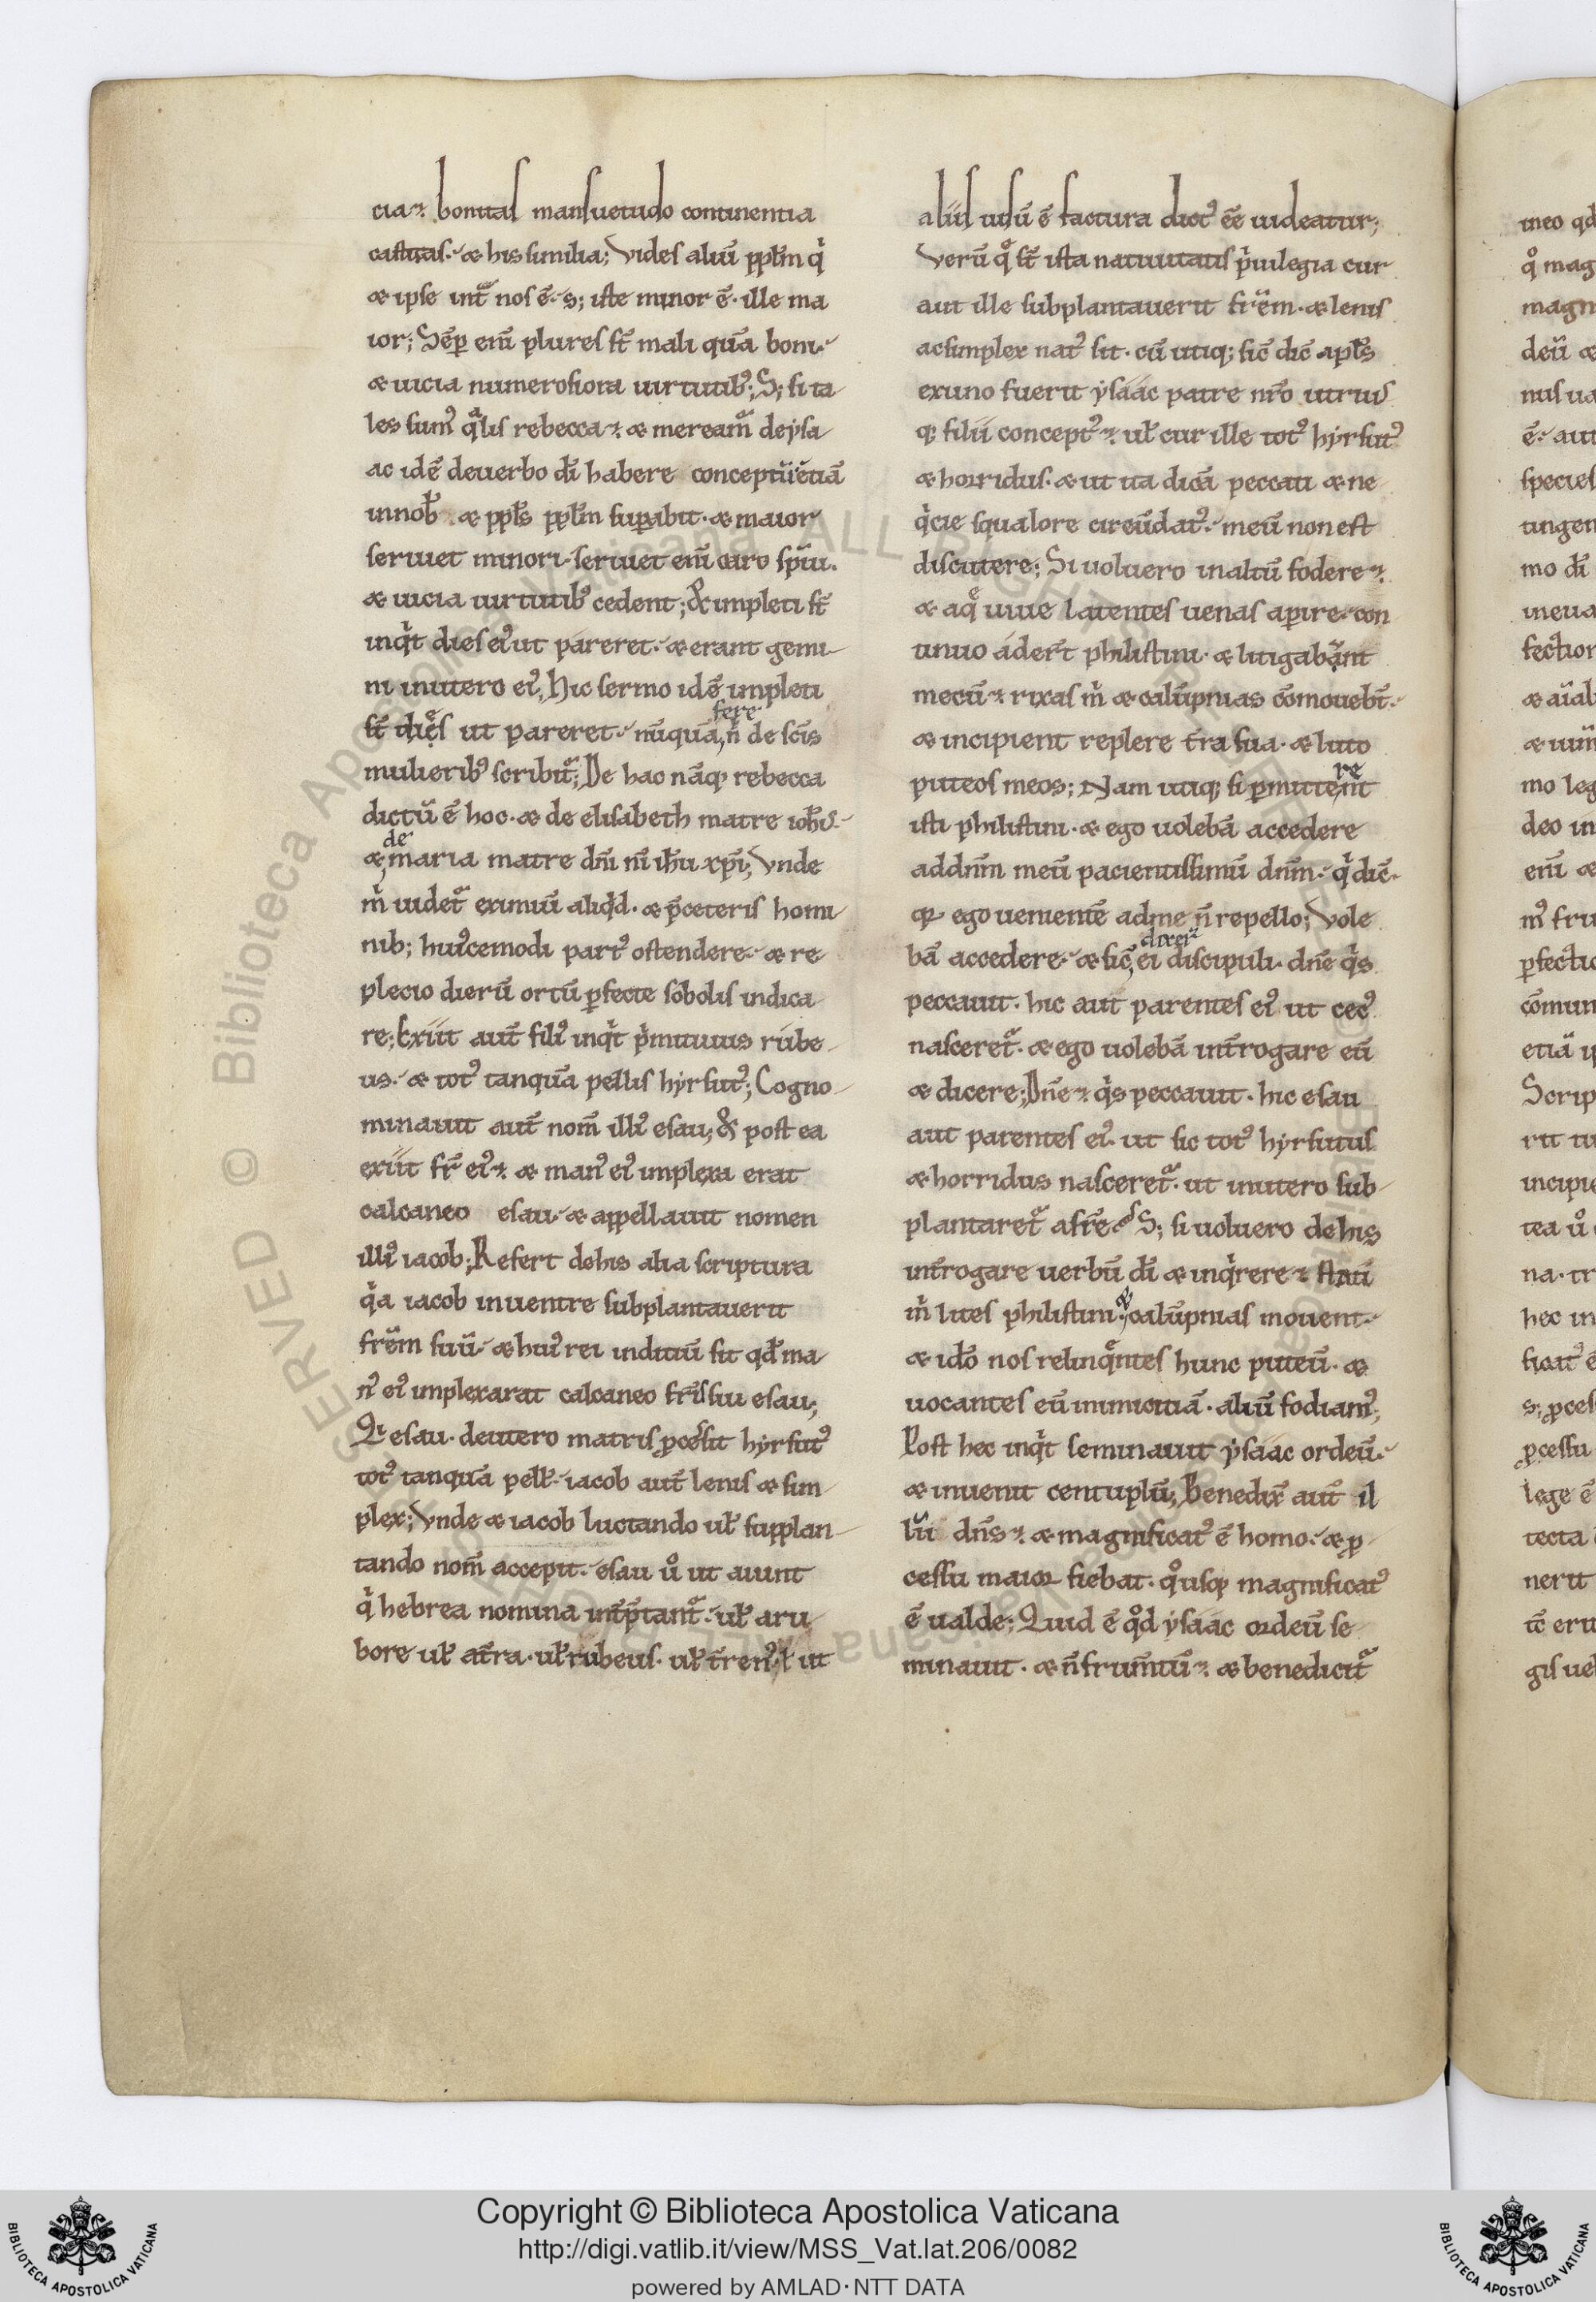 cia. bonitas mansuetudo continentia
castitas. & his similia; Vides aliū pplm̄ q̇
& ipse int̄ nos ē. s; iste minor ē. ille ma
ior; Sēp enī plures st̄ mali quā boni.
& uicia numerosiora uirtutib; S; si ta
les sum᾿ qͣlis rebecca. & mereamͬ de ẏsa
ac idē de uerbo dī habere conceptū etiā
in nob̄ & ppls̄ pplm̄ supabit. & maior
seruet minori. seruet enī caro spūi.
& uicia uirtutib᾿ cedent; & impleti st̄
inqͥt dies ei᾿ ut pareret. & erant gemi
ni in utero ei᾿; Hic sermo idē impleti
st̄ dies ut pareret. nūquā fere n̄ de scīs
mulierib᾿ scribitͬ; De hac nāq; rebecca
dictū ē hoc. & de elisabeth matre ioh̄is.
& de maria matre dn̄i nr̄i ih̄u xp̄i; Vnde
mͥ uidetͬ eximiū aliqͥd. & p̄ceteris homi
nib; hui᾿cemodi part᾿ ostendere. & re
plecio dierū ortū pfecte sobolis indica
re; Exiit aut̄ fili᾿ inqͥt pͥmitiuus rube
us. & tot᾿ tanquā pellis hyrsut᾿; Cogno
minauit aut̄ nom̄ illi᾿ esau; & post ea
exiit fr̄ ei᾿. & man᾿ ei᾿ implexa erat
calcaneo esau. & appellauit nomen
illi᾿ iacob; Refert de his alia scriptura
qͥa iacob in uentre subplantauerit
frēm suū. & hui᾿ rei inditiū sit qd̄ ma
n᾿ ei᾿ implexarat calcaneo fr̄is sui esau;
Qͬ esau. de utero matris pcesit hyrsut᾿
tot᾿ tanquā pell̄. iacob aut̄ lenis & sim
plex; Vnde & iacob luctando ul̄ supplan
tando nom̄ accepit. esau uͦ ut aiunt
qͥ hebrea nomina int̄p̄tantͬ. ul̄ a ru
bore ul̄ a t̄ra. ul̄ rubeus. ul̄ t̄ren᾿. l ut
aliis uisū ē factura dict᾿ ēē uideatur;
Verū qͦ st̄ ista natiuitatis pͥuilegia cur
aut ille subplantauerit frēm. & lenis
ac simplex nat᾿ sit. cū utiq; sic̄ dic̄ apls̄
ex uno fuerit ẏsáác patre nr̄o utrius
q; filii concept᾿. ul̄ cur ille tot᾿ hẏrsut᾿
& horridus. & ut ita dicā peccati & ne
qͥcie squalore circūdat᾿. meū non est
discutere; Si uoluero in altū fodere.
& aqͤ uiue latentes uenas apire. con
tinuo áder̄t philistini. & litigabant
mecū. rixas mͥ & calūpnias cōmouebt̄.
& incipient replere t̄ra sua. & luto
puteos meos; Nam utiq; si pmitterent
isti philistini. & ego uolebā accedere
ad dnm̄ meū pacientissimū dnm̄. qͥ dic̄.
qͬ ego uenientē ad me n̄ repello; Vole
bā accedere. & sic̄ dixer̄ ei discipuli. dnē qͥs
peccauit. hic aut parentes ei᾿ ut cec᾿
nasceretͬ. & ego uolebā int̄rogare eū
& dicere; Dnē. qͥs peccauit. hic esau
aut parentes ei᾿. ut sic tot᾿ hẏrsutus
& horridus nasceretͬ. ut in utero sub
plantaretͬ a fr̄e; S; si uoluero de his
int̄rogare uerbū dī & inqͥrere. statī
mͥ lites philistini. & calūpnias mouent.
& id̄o nos relinqͤntes hunc puteū. &
uocantes eū inimicitiā. aliū fodiam᾿;
Post hec inqͥt seminauit ẏsáác ordeū.
& inuenit centuplū; Benedix̄ aut̄ il
lū dns̄. & magnificat᾿ ē homo. & p
cessu maior fiebat. qͦusq; magnificat᾿
ē ualde; Quid ē qͦd ẏsáác ordeū se
minauit. & n̄ frumtū. & benedicitͬ
Copyright © Biblioteca Apostolica Vaticana
http://digi.vatlib.it/view/MSS_Vat.lat.206/0082
powered by AMLAD·NTT DATA
BIBLIOTECA APOSTOLICA VATICANA
BIBLIOTECA APOSTOLICA VATICANA